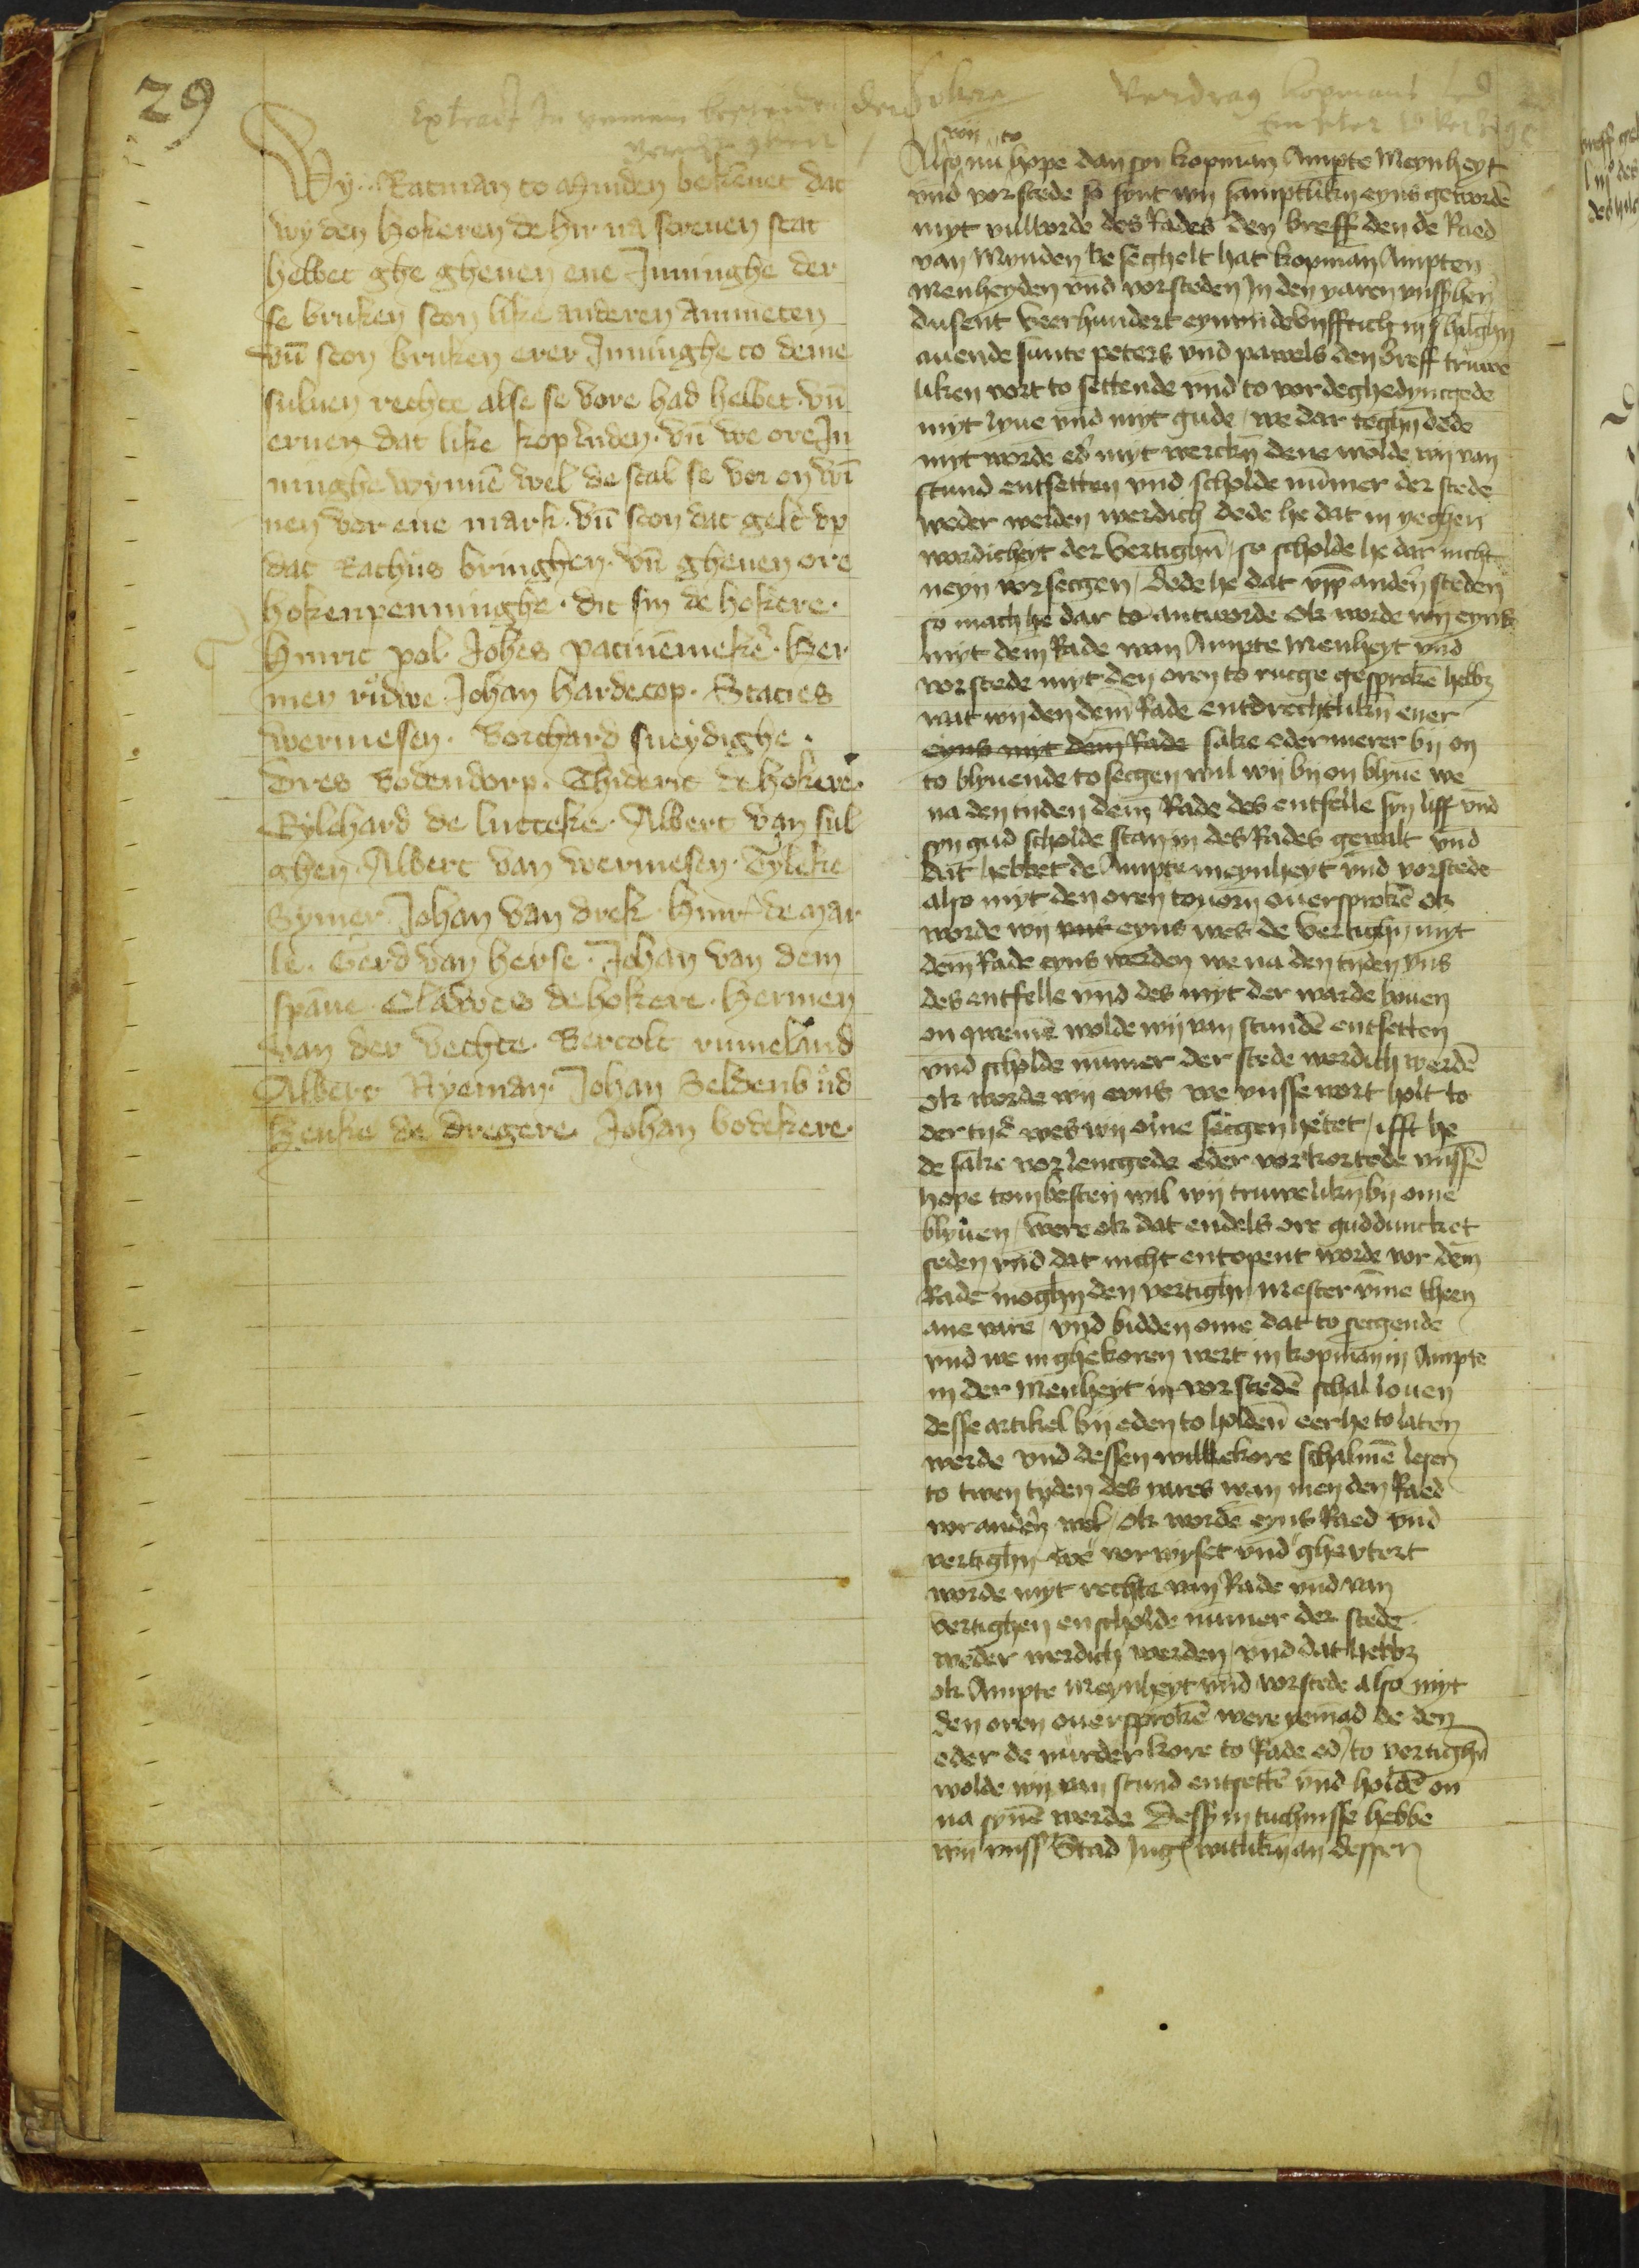 29
Wy Ratman to Minden bekēnet dat
wy den Hokeren de hir na screuen stat
hebbet ghe gheuen ene Inninghe der
se bruken scon like anderen Ammeten
vn̄ scon bruken erer Inninghe to deme
suluen rechte alse se vore had hebbet vn̄
eruen dat like koplůden. vn̄ we ore In
ninghe wynnē wel de scal se vor en wī
nen vor ene mark. vn̄ scon dat gelt vp
dat Rathůs bringhen. vn̄ gheuen ore
hokenpenninghe. dit sin de hokere.
Hinric pol. Joh̄es patinēmekē. Her
men růdwe. Johan hardecop. Stacies
wermesen. Borchard sneydighe.
Dres Bodendorp. Thideric de Hokere.
Rylchard de lutteke. Albert van sul
ghen. Albert van wermesen. Tyleke
Symer. Johan van drek. Hinr̄ de mar
le. Gerd van herse. Johan van dem
spāne. Clawes de hokere. Hermen
van der vechte. Bertolt rumeland
Albert Nyeman. Johan Seldenbůd
Henke de dregere. Johan bodekere.
Verdrag kopmans
wij to
Also nu hope dan syn kopman Ampte Meynheyt
vnd vorstede so synt wij samptlikn eyns gewordē
myt vulborde des Rades den breff den de Raed
van Mynden beseghelt hat kopman Ampten
menheyden vnd vorsteden In den yaren vnss hern
dusent veerhundert eynundevyfftich in hilghn
auende sunte peters vnd pawels den breff truwe
liken vort to settende vnd to vordeghedyngede
myt lyue vnd myt gude / we dar teghn dede
myt worde ed̄ myt werckn dene wolde wij van
stund entsetten vnd scholde nūmer der stede
weder werden werdich dede he dat in yeghen
wordicheyt der vertighn̄ / so scholde he dar nicht
neyn vorsecgen / dede he dat vpp andern steden
so mach he dar to antworde ok worde wij eyns
myt dem Rade van Ampte Menheyt vnd
vorstede myt den oren to rucge gesprokē hebb
wat wij den dem Rade entdrechtlikn euer
eyns myt dem Rade sake eder merer bij on
to blyuende to secgen wil wij bij on blyuē we
na den tyden dem Rade des entfelle syn liff vnd
syn gud scholde stan in des Rades gewalt vnd
dat hebbet de Ampte meynheyt vnd vorstede
also myt den oren touorn ouersprokē ok
worde wij eyns wes de vertighn myt
dem Rade eyns werden we na den tyden vns
des entfelle vnd des myt der warde bouen
on qwemē wolde wij van stundē entsetten
vnd scholde nūmer der stede werdich werdē
ok worde wij eyns we vnsse wort holt to
der tyd wes wij ome secgen hetet / ifft he
de sake vorlengede eder vorkortede vnssē
hope tom besten wil wij truwelikn bij ome
blyuen / were ok dat endels ore gudduncket
seden vnd dat nicht entopent worde vor dem
Rade moghn den vertighn mester vme theen
ane vare / vnd bidden ome dat to secgende
vnd we in ghekoren wert in kopman in Ampte
in der Menheyt in vorstedē schal louen
desse artikel bij eden to holden eer he to laten
werde vnd dessen willekore schalmē lesen
to twen tyden des yares wan men den Raed
vorandern wel / ok wordē eyns Raed vnd
vertighn we vorwyset vnd
worde myt rechte van Rade vnd van
vertighen en scholde nūmer der stede
weder werdich werden / vnd dat hebb
ok Ampte Meynheyt vnd vorstede also myt
den oren ouersprokē were yemād de den
eder de nurder kore to Rade ed̄ to vertighn
wolde wij van stund entsettē vnd holdē on
na synē werde Dess in tuchnisse hebbe
wij vnss Stad Ing witlikn an dessen